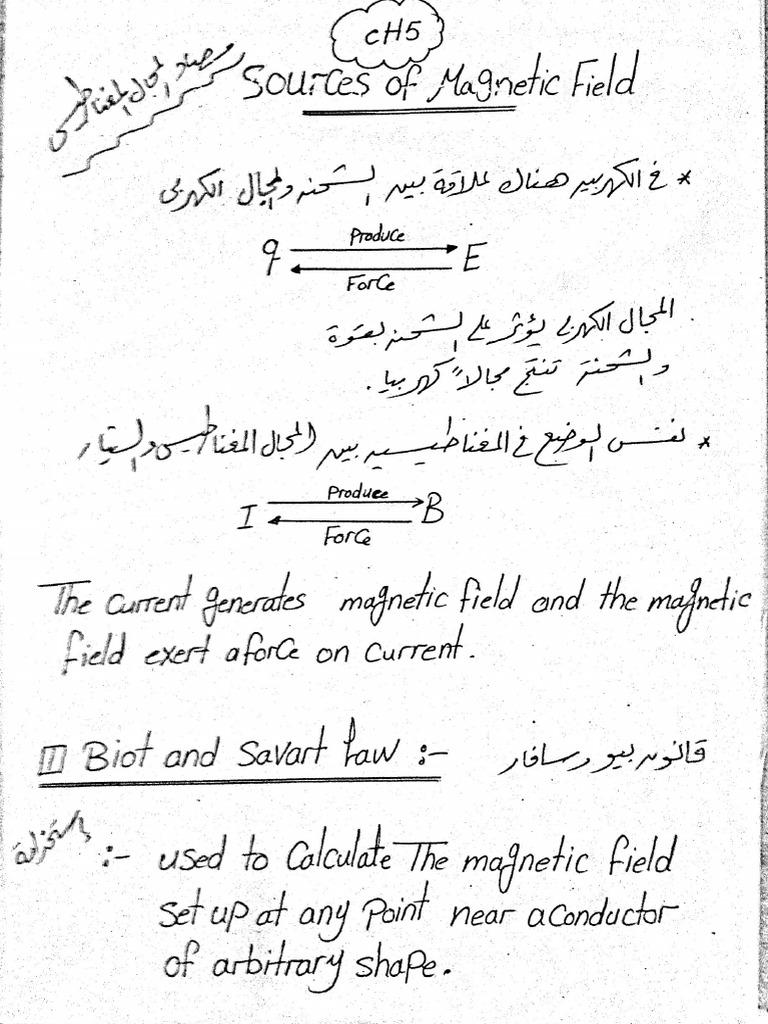 CH5
مصادر المجال المغناطيسى
Sources of Magnetic Field
* فى الكهربيه هناك علاقة بين الشحنه والمجال الكهربى
q Produce E
Force
المجال الكهربى يؤثر على الشحنه بقوة
والشحنة تنتج مجالاً كهربيا.
* نفس الوضع فى المغناطيسيه بين المجال المغناطيسى والتيار
I Produce B
Force
The current generates magnetic field and the magnetic
field exert a force on current.
1 Biot and Savart law :- قانون بيو وسافار
:- used to Calculate The magnetic field
set up at any Point near a conductor
of arbitrary shape.